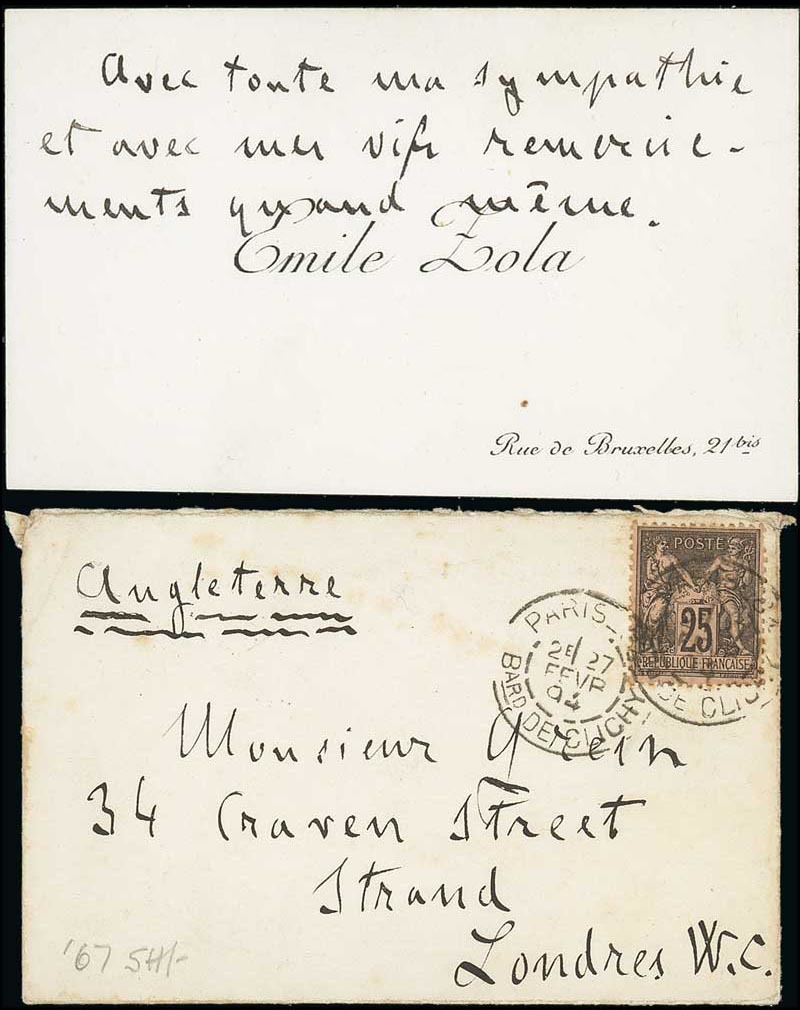 Avec toute ma sympathie
et avec mes vifs remercie-
ments quand même.
Emile Zola
Rue de Bruxelles, 21 bis
Angleterre
POSTE
25
REPUBLIQUE FRANCAISE
PARIS
2E 27
FEVR
94
BARD DE CLICHY
DE CLIC
Monsieur Grein
34 Craven Street
Strand
Londres W.C.
'67